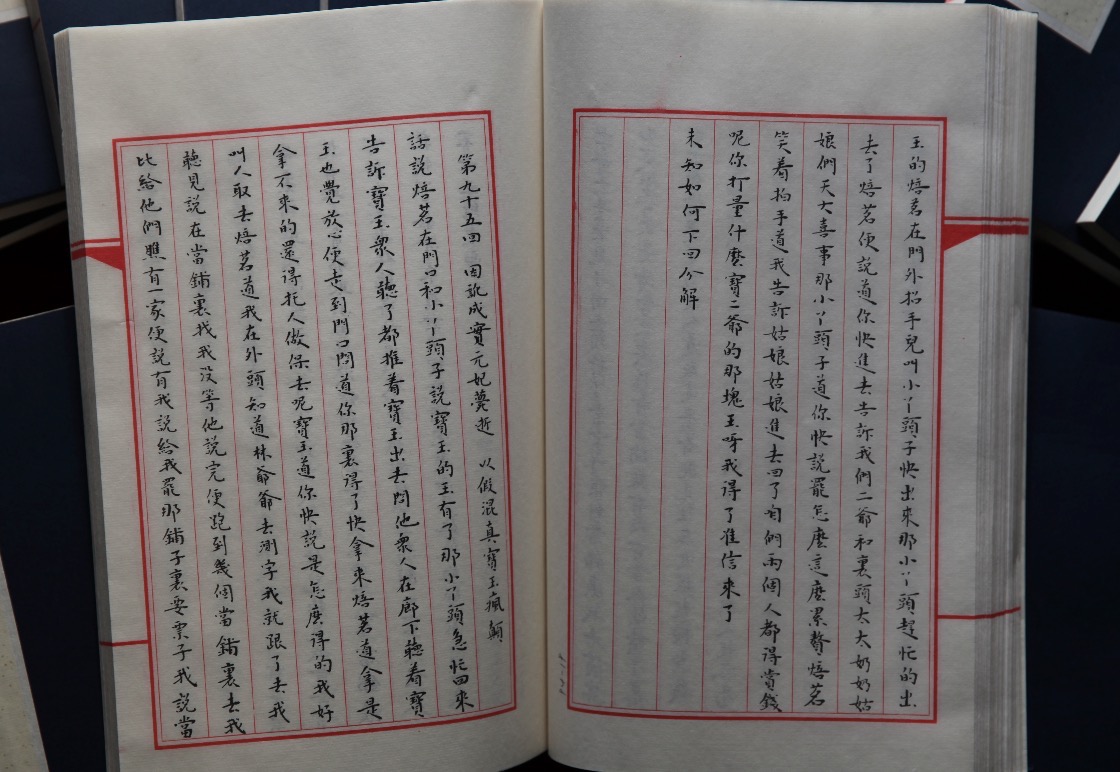 玉的焙茗在門外招手兒叫小丫頭子快出來那小丫頭趕忙的出
去了焙茗便說道你快進去告訴我們二爺和裏頭太太奶奶姑
娘們天大喜事那小丫頭子道你快說罷怎麼這麼累贅焙茗
笑着拍手道我告訴姑娘姑娘進去回了咱們兩個人都得賞錢
呢你打量什麼寶二爺的那塊玉呀我得了准信來了
未知如何下回分解
第九十五回 因訛成實元妃薨逝 以假混真寶玉瘋顛
話說焙茗在門口和小丫頭子說寶玉的玉有了那小丫頭急忙回來
告訴寶玉衆人聽了都推着寶玉出去問他衆人在廊下聽着寶
玉也覺放心便走到門口問道你那裏得了快拿來焙茗道拿是
拿不來的還得托人做保去呢寶玉道你快說是怎麼得的我好
叫人取去焙茗道我在外頭知道林爺爺去測字我就跟了去我
聽見說在當鋪裏找我沒等他說完便跑到幾個當鋪裏去我
比給他們瞧有一家便說有我說給我罷那鋪子裏要票子我說當